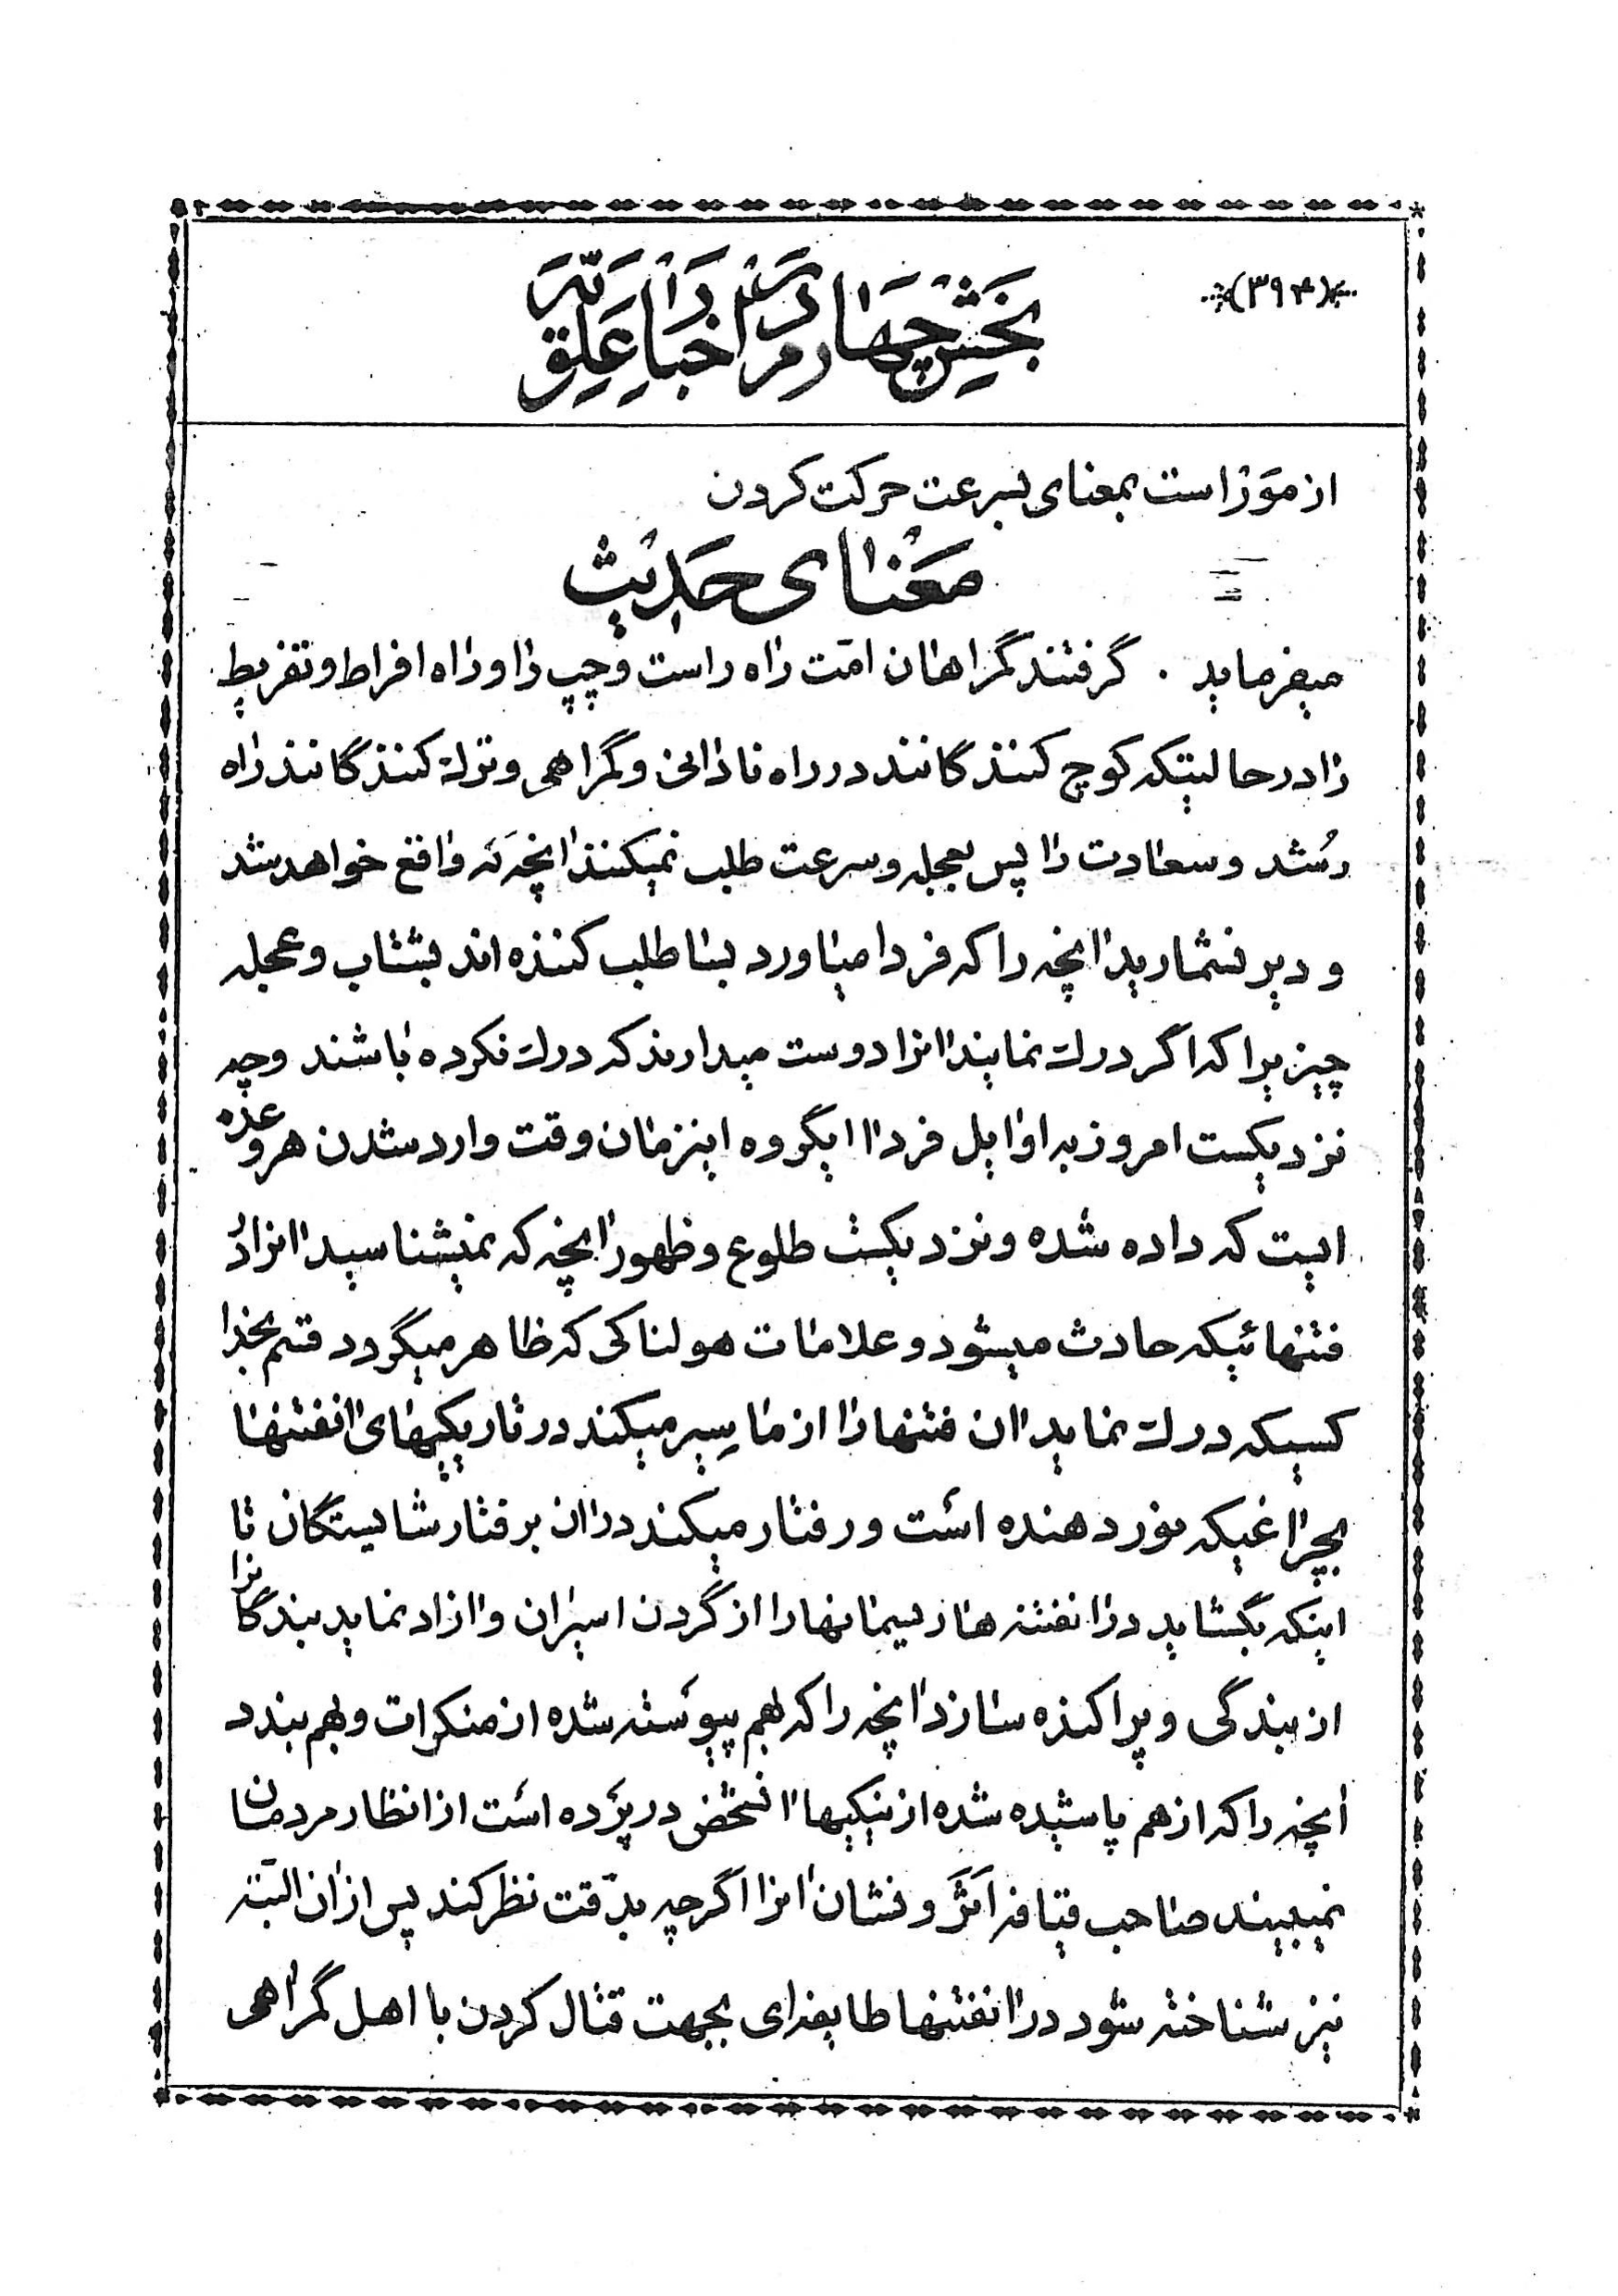 (۳۹۴)
بخش چهارم در اخبار علویه
از مور است بمعنای بسرعت حرکت کردن
معنای حدیث
میفرماید . گرفتند گمراهان امّت راه راست و چپ را و راه افراط و تفریط
را در حالیتیکه کوچ کنندگانند در راه نادانی و گمراهی و ترک کنندگانند راه
رُشد و سعادت را پس بعجله و سرعت طلب نمیکنند آنچه که واقع خواهد شد
و دیر نشمارید آنچه را که فردا میآورد بسا طلب کننده اند بشتاب و عجله
چیزیرا که اگر درک نمایند آنرا دوست میدارند که درک نکرده باشند و چه
نزدیکست امروز به اوایل فردا ای گروه این زمان وقت وارد شدن هر وعده
ایست که داده شده و نزدیکست طلوع و ظهور آنچه که نمیشناسید آنرا از
فتنهائیکه حادث میشود و علامات هولناکی که ظاهر میگردد قسم بخدا
کسیکه درک نماید آن فتنها را از ما سیر میکند در تاریکیهای آنفتنها
بچراغیکه نور دهنده است و رفتار میکند در آن بر فتار شایستگان تا
اینکه بگشاید در آنفتنه ها ریسمانها را از گردن اسیران و آزاد نماید بندگانرا
از بندگی و پراکنده سازد آنچه را که بهم پیوسته شده از منکرات و بهم بندد
آنچه را که از هم پاشیده شده از نیکیها آنشخص در پرده است از انظار مردمان
نمیبیند صاحب قیافه اثر و نشان آنرا اگر چه بدقّت نظر کند پس از آن البته
نیز شناخته شود در آنفتنها طایفه ای بجهت قتال کردن با اهل گمراهی